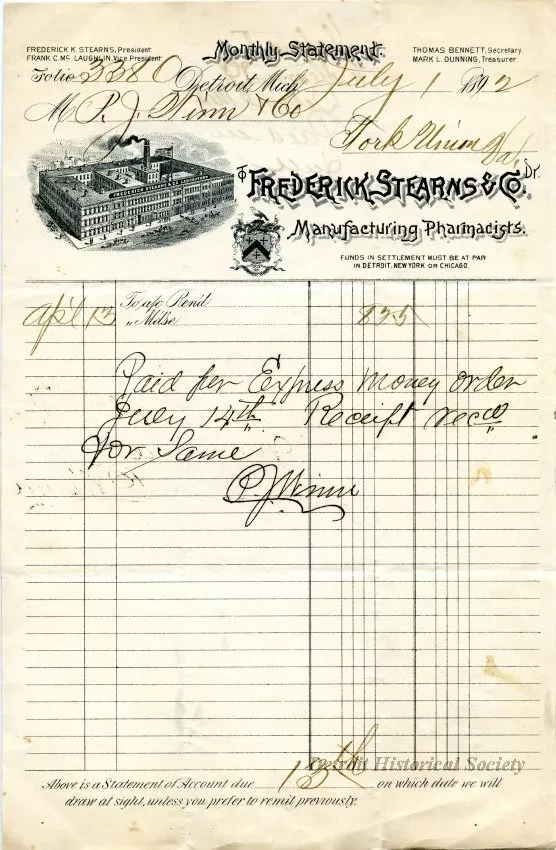 Monthly Statement.
FREDERICK K. STEARNS, President
FRANK C. Mc LAUGHLIN, Vice President
THOMAS BENNETT, Secretary
MARK L. DUNNING, Treasurer
Folio 3380 Detroit Mich July 1 1892
M P. J. Winn & Co
York Union
To FREDERICK STEARNS & CO. Dr.
Manufacturing Pharmacists.
FUNDS IN SETTLEMENT MUST BE AT PAR
IN DETROIT, NEW YORK OR CHICAGO.
Apl 13 To a/c Rend
„ Mdse 825
Paid per Express Money order
July 14th. Receipt recd
for Same
P. J. Winn
Detroit Historical Society
Above is a Statement of Account due 15th on which date we will
draw at sight, unless you prefer to remit previously.